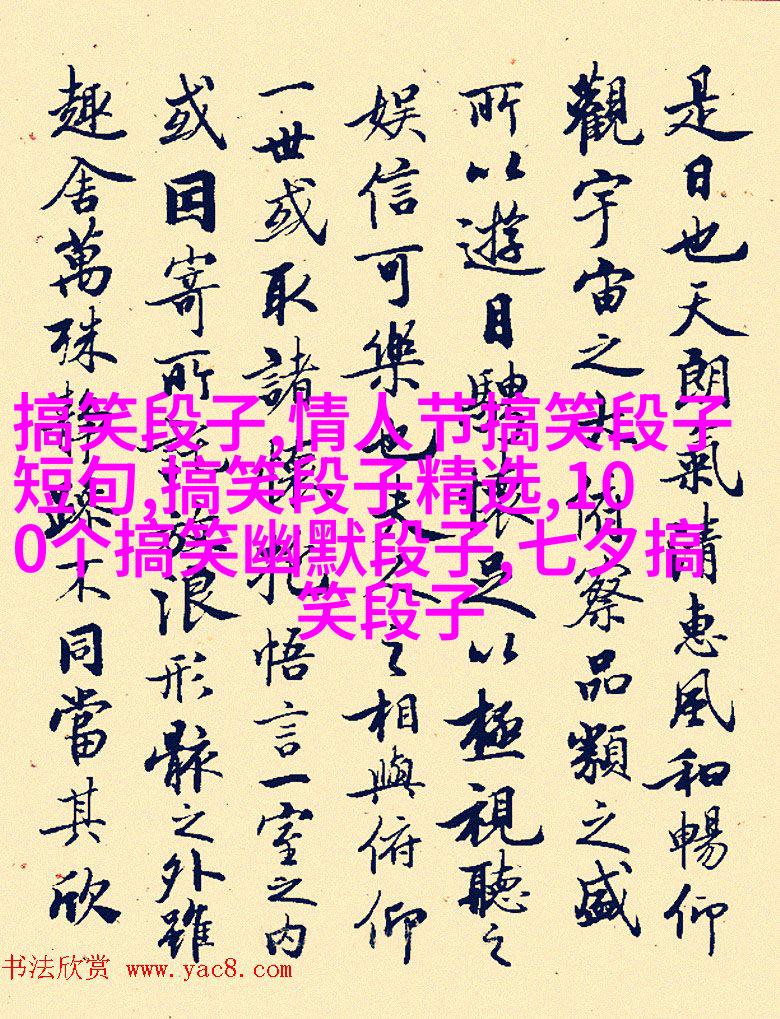 是日也天朗氣清惠風和暢仰
觀宇宙之大俯察品類之盛
所以遊目騁懷足以極視聽之
娛信可樂也夫人之相與俯仰
一世或取諸懷抱悟言一室之內
或因寄所託放浪形骸之外雖
趣舍萬殊靜躁不同當其欣
搞笑段子,情人节搞笑段子
短句,搞笑段子精选,10
0个搞笑幽默段子,七夕搞
笑段子
书法欣赏 www.yac8.com